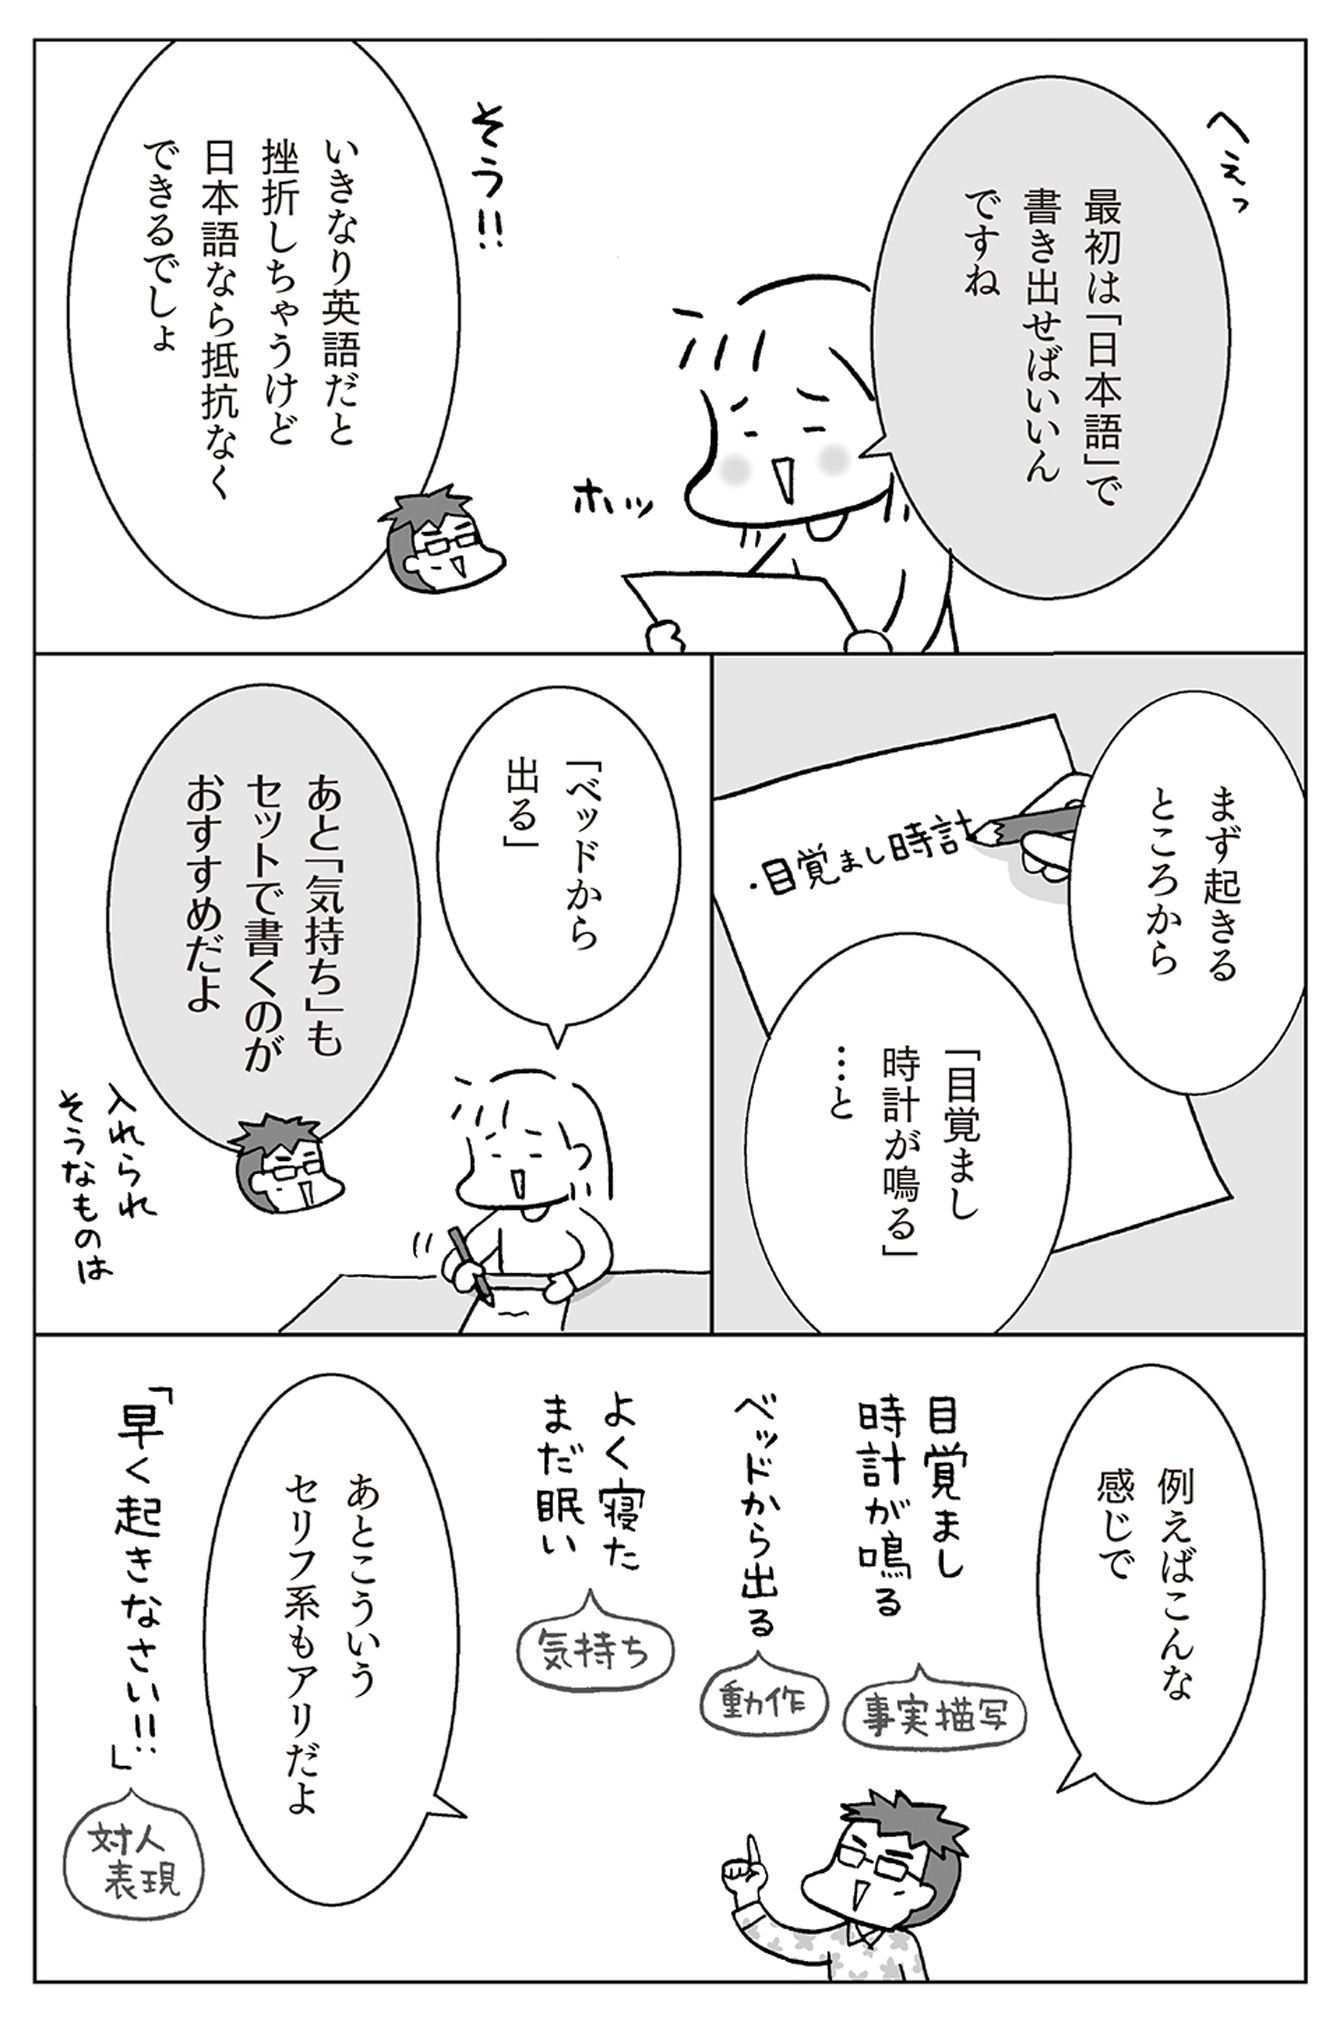 へぇっ
最初は「日本語」で
書き出せばいいん
ですね
ホッ
そう!!
いきなり英語だと
挫折しちゃうけど
日本語なら抵抗なく
できるでしょ
まず起きる
ところから
・目覚まし時計
「目覚まし
時計が鳴る」
…と
「ベッドから
出る」
あと「気持ち」も
セットで書くのが
おすすめだよ
入れられ
そうなものは
例えばこんな
感じで
目覚まし
時計が鳴る
事実描写
ベッドから出る
動作
よく寝た
まだ眠い
気持ち
あとこういう
セリフ系もアリだよ
「早く起きなさい!!」
対人
表現